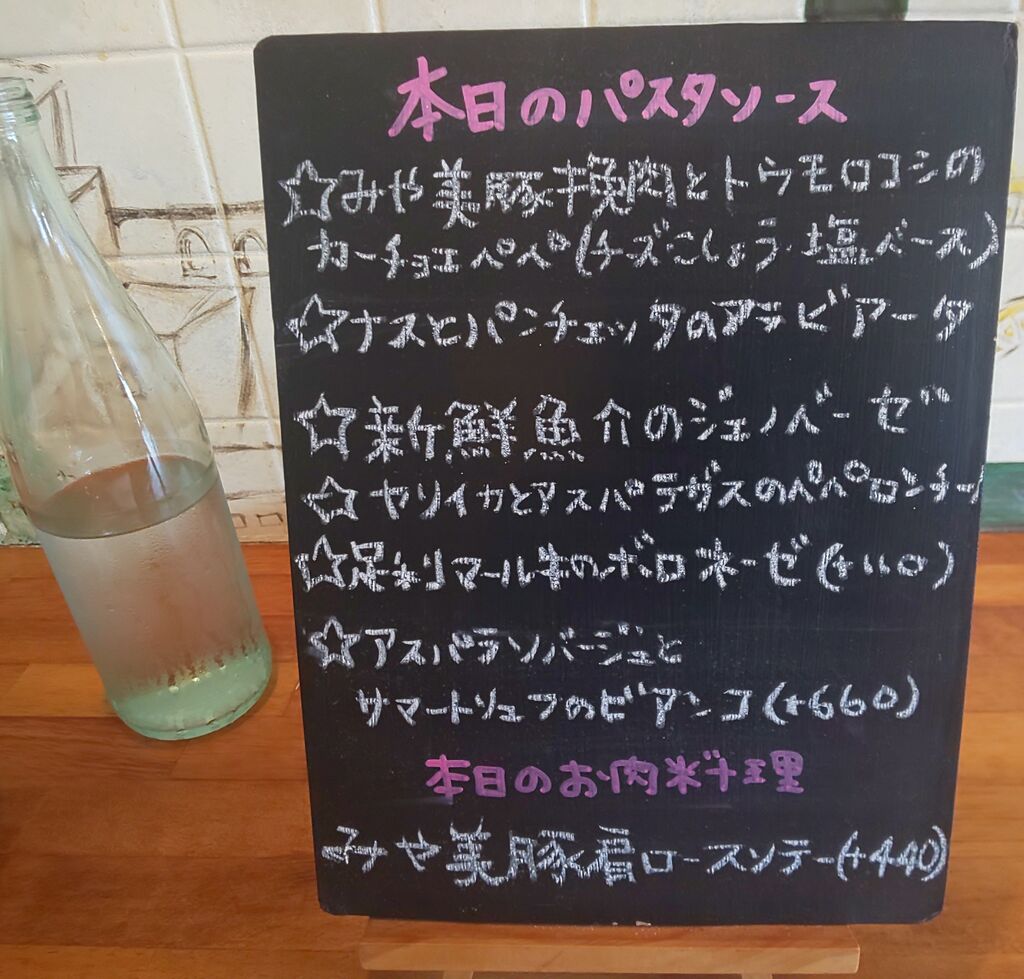 本日のパスタソース
☆みや美豚挽肉とトウモロコシの
カーチョエペペ(チーズこしょう・塩ベース)
☆ナスとパンチェッタのアラビアータ
☆新鮮魚介のジェノベーゼ
☆ヤリイカとアスパラガスのペペロンチーノ
☆足利マール牛のボロネーゼ(+110)
☆アスパラソバージュと
サマートリュフのビアンコ(+660)
本日のお肉料理
みや美豚肩ロースソテー(+440)